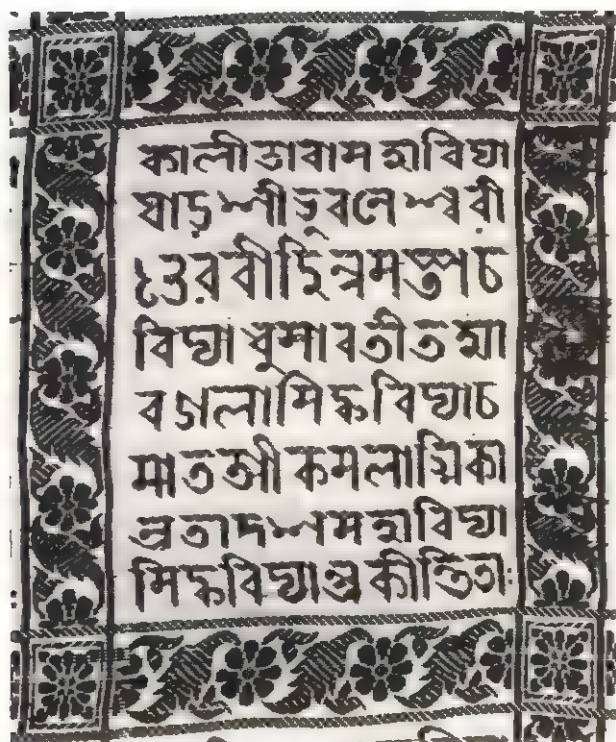 কালীতাৰামহাবিদ্যা
ষোড়শীভুবনেশ্বরী
ভৈরবীছিন্নমস্তাচ
বিদ্যাধুমাবতীতথা
বগলাসিদ্ধবিদ্যাচ
মাতঙ্গীকমলাত্মিকা
এতাদশমহাবিদ্যা
সিদ্ধবিদ্যাপ্রকীর্ত্তিতাঃ